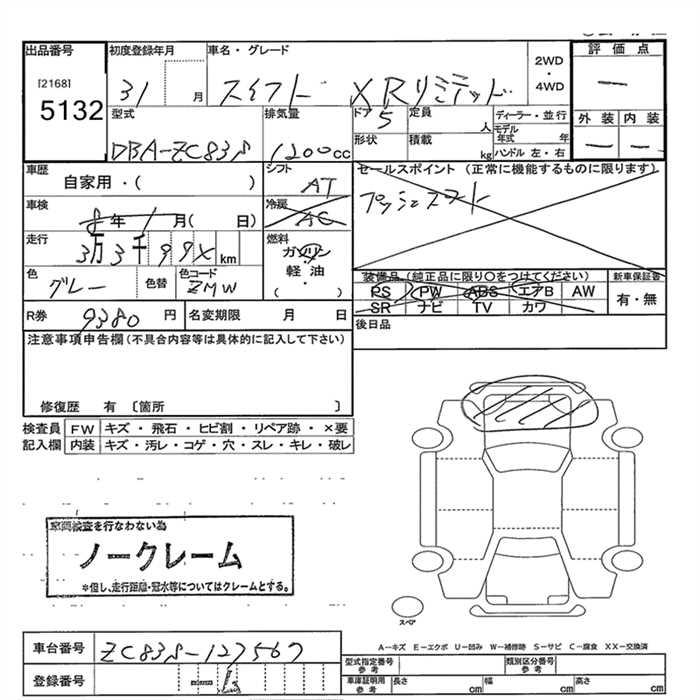 出品番号 初度登録年月 車名・グレード 評価点
[2168]
5132
31 月 スイフト XRリミテッド
2WD
・
4WD
―
型式 排気量 ドア 5 定員 人 ディーラー・並行
モデル年式 年
外装 内装
DBA-ZC83S 1200cc 形状 積載 kg ハンドル 左・右 ― ―
車歴 自家用・( ) シフト AT
セールスポイント (正常に機能するものに限ります)
プッシュスタート
車検 年 1月( 日) 冷房 AC
走行 3万3千99X km 燃料 ガソリン
軽油
( )
色 グレー 色替 色コード ZMW
装備品 (純正品に限り○をつけてください) 新車保証書
PS PW ABS エアB AW 有・無
SR ナビ TV カワ
R券 9380円 名変期限 月 日 後日品
注意事項申告欄(不具合内容等は具体的に記入して下さい)
修復歴 有 〔箇所 〕
検査員 FW キズ・飛石・ヒビ割・リペア跡・×要
記入欄 内装 キズ・汚レ・コゲ・穴・スレ・キレ・破レ
車両検査を行なわない為
ノークレーム
※但し、走行距離・冠水等についてはクレームとする。
スペア
A-キズ E-エクボ U-凹み W-補修跡 S-サビ C-腐食 XX-交換済
車台番号 ZC83S-127567
登録番号
型式指定番号 参考 類別区分番号 参考
車庫証明用 参考 長さ cm 幅 cm 高さ cm